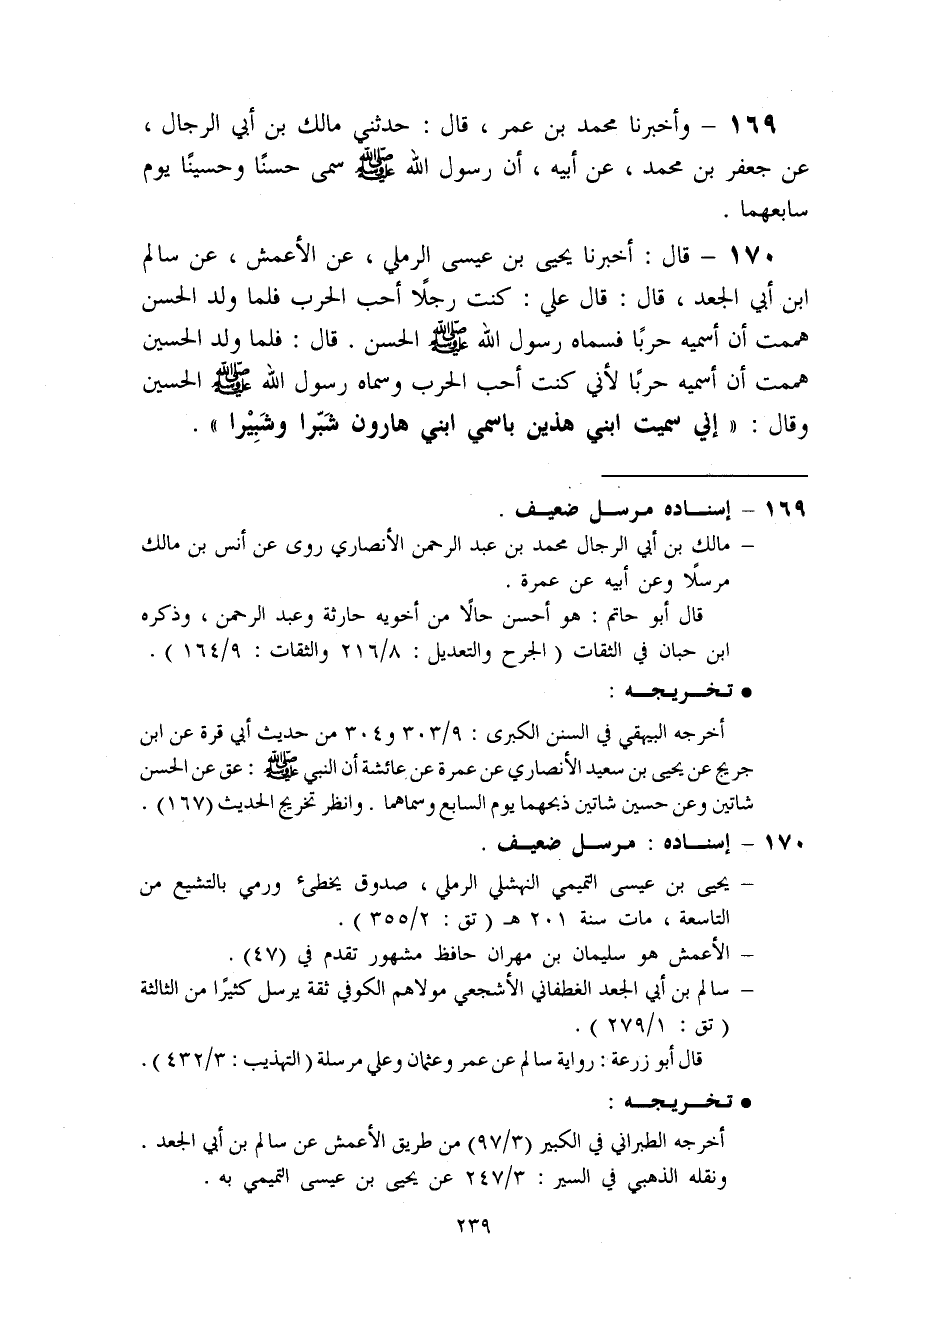 ١٦٩ – وأخبرنا محمد بن عمر ، قال : حدثني مالك بن أبي الرجال ،
عن جعفر بن محمد ، عن أبيه ، أن رسول الله ﷺ سمى حسنًا وحسينًا يوم
سابعهما .
١٧٠ – قال : أخبرنا يحيى بن عيسى الرملي ، عن الأعمش ، عن سالم
ابن أبي الجعد ، قال : قال علي : كنت رجلًا أحب الحرب فلما ولد الحسن
هممت أن أسميه حربًا فسماه رسول الله ﷺ الحسن . قال : فلما ولد الحسين
هممت أن أسميه حربًا لأني كنت أحب الحرب وسماه رسول الله ﷺ الحسين
وقال : « إني سميت ابني هذين باسمي ابني هارون شَبّرا وشَبِيْرا » .
١٦٩ – إسناده مرسل ضعيف .
– مالك بن أبي الرجال محمد بن عبد الرحمن الأنصاري روى عن أنس بن مالك
مرسلًا وعن أبيه عن عمرة .
قال أبو حاتم : هو أحسن حالًا من أخويه حارثة وعبد الرحمن ، وذكره
ابن حبان في الثقات ( الجرح والتعديل : ٢١٦/٨ والثقات : ١٦٤/٩ ) .
● تخريجه :
أخرجه البيهقي في السنن الكبرى : ٣٠٣/٩ و٣٠٤ من حديث أبي قرة عن ابن
جريج عن يحيى بن سعيد الأنصاري عن عمرة عن عائشة أن النبي ﷺ : عق عن الحسن
شاتين وعن حسين شاتين ذبحهما يوم السابع وسماهما . وانظر تخريج الحديث (١٦٧) .
١٧٠ – إسناده : مرسل ضعيف .
– يحيى بن عيسى التميمي النهشلي الرملي ، صدوق يخطىء ورمي بالتشيع من
التاسعة ، مات سنة ٢٠١ هـ ( تق : ٣٥٥/٢ ) .
– الأعمش هو سليمان بن مهران حافظ مشهور تقدم في (٤٧) .
– سالم بن أبي الجعد الغطفاني الأشجعي مولاهم الكوفي ثقة يرسل كثيرًا من الثالثة
( تق : ٢٧٩/١ ) .
قال أبو زرعة : رواية سالم عن عمر وعثمان وعلي مرسلة ( التهذيب : ٤٣٢/٣ ) .
● تخريجه :
أخرجه الطبراني في الكبير (٩٧/٣) من طريق الأعمش عن سالم بن أبي الجعد .
ونقله الذهبي في السير : ٢٤٧/٣ عن يحيى بن عيسى التميمي به .
٢٣٩